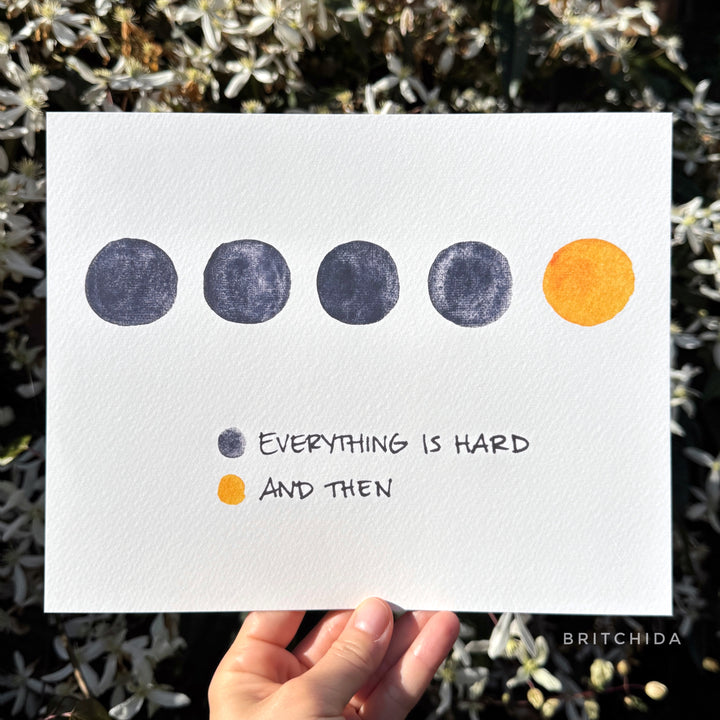 EVERYTHING IS HARD
AND THEN
BRITCHIDA